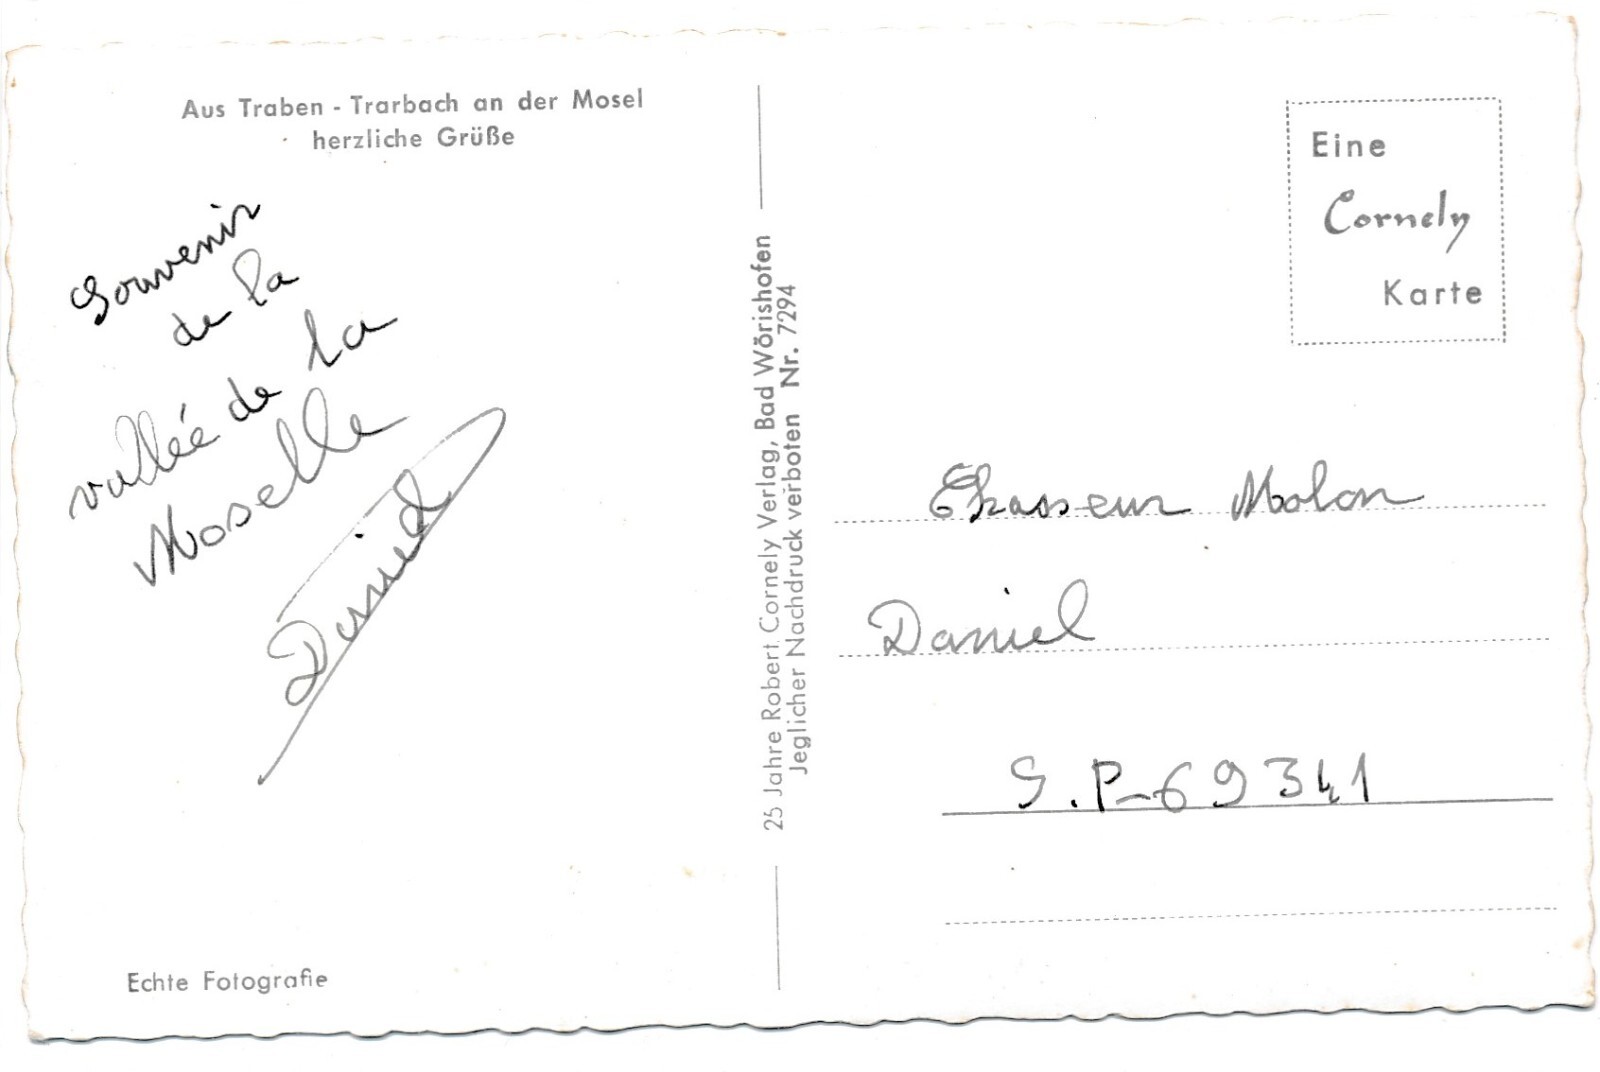 Aus Traben - Trarbach an der Mosel
herzliche Grüße
Souvenir
de la
vallée de la
Moselle
Daniel
Echte Fotografie
25 Jahre Robert Cornely Verlag, Bad Wörishofen
Jeglicher Nachdruck verboten Nr. 7294
Eine
Cornely
Karte
Chasseur Molon
Daniel
S.P-69341